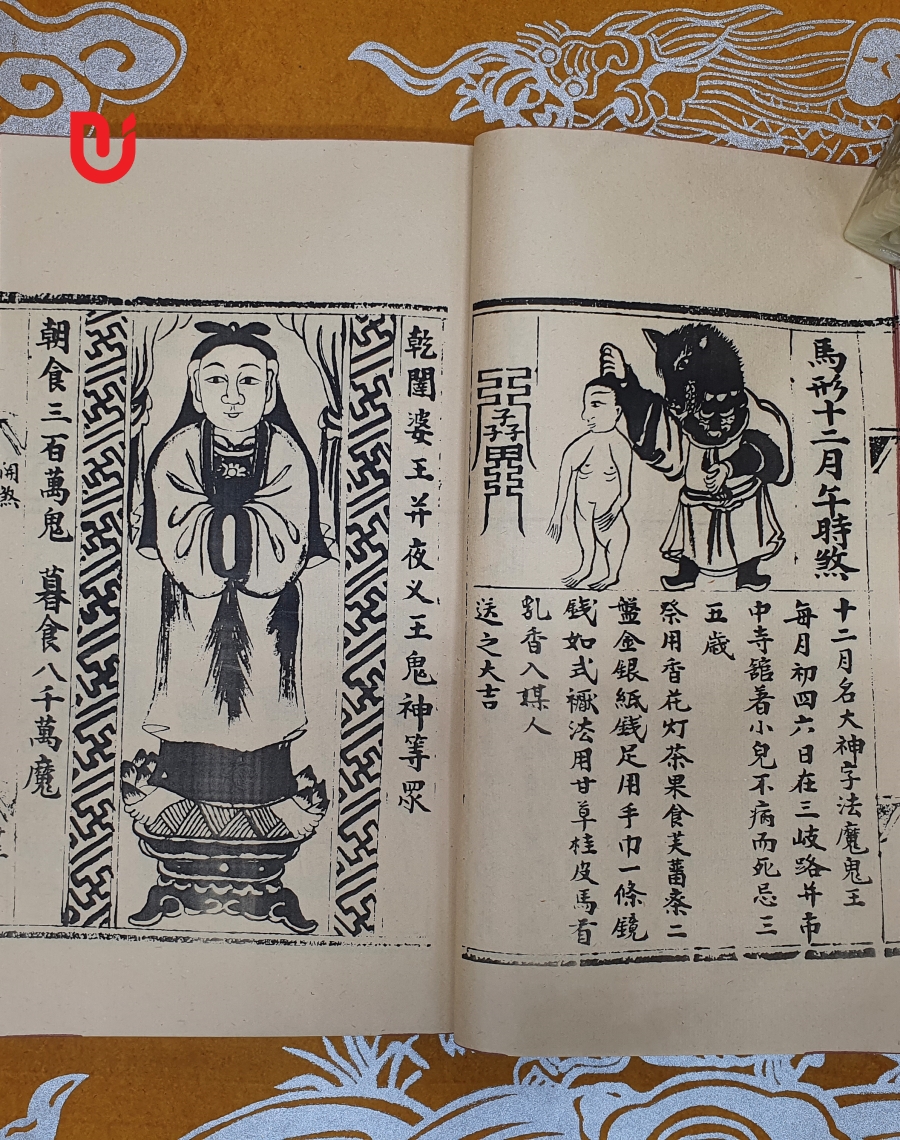 馬形十二月午時煞
十二月名大神字法魔鬼王
每月初四六日在三岐路并市
中寺舘着小兒不病而死忌三
五歲
祭用香花灯茶果食芙蕃斋二
盤金銀紙錢足用手巾一條鏡
錢如式禳法用甘草桂皮馬首
乳香入媒人
送之大吉
乾闥婆王并夜义王鬼神等眾
朝食三百萬鬼 暮食八千萬魔